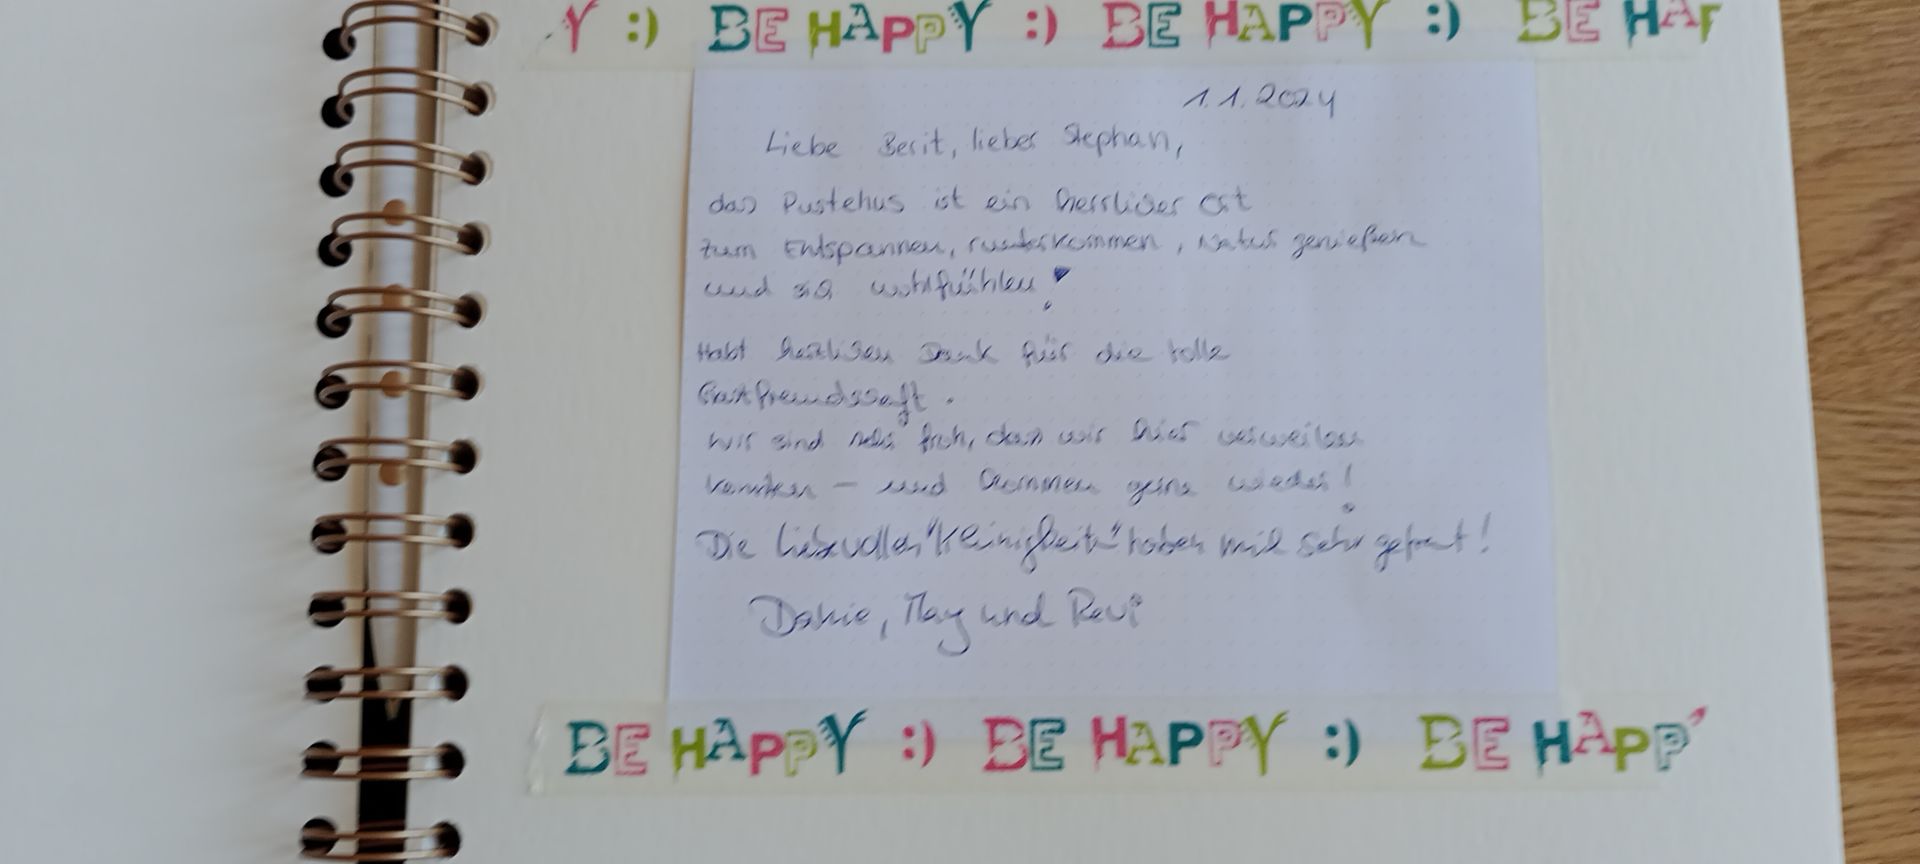 Y :) BE HAPPY :) BE HAPPY :) BE HAP
1.1.2024
Liebe Berit, lieber Stephan,
das Pustehus ist ein herrlicher Ort
zum Entspannen, runterkommen, Natur genießen
und sich wohlfühlen!
Habt herzlichen Dank für die tolle
Gastfreundschaft.
Wir sind sehr froh, dass wir hier verweilen
konnten - und kommen gerne wieder!
Die liebevollen "Kleinigkeiten" haben mich sehr gefreut!
und
BE HAPPY :) BE HAPPY :) BE HAPP